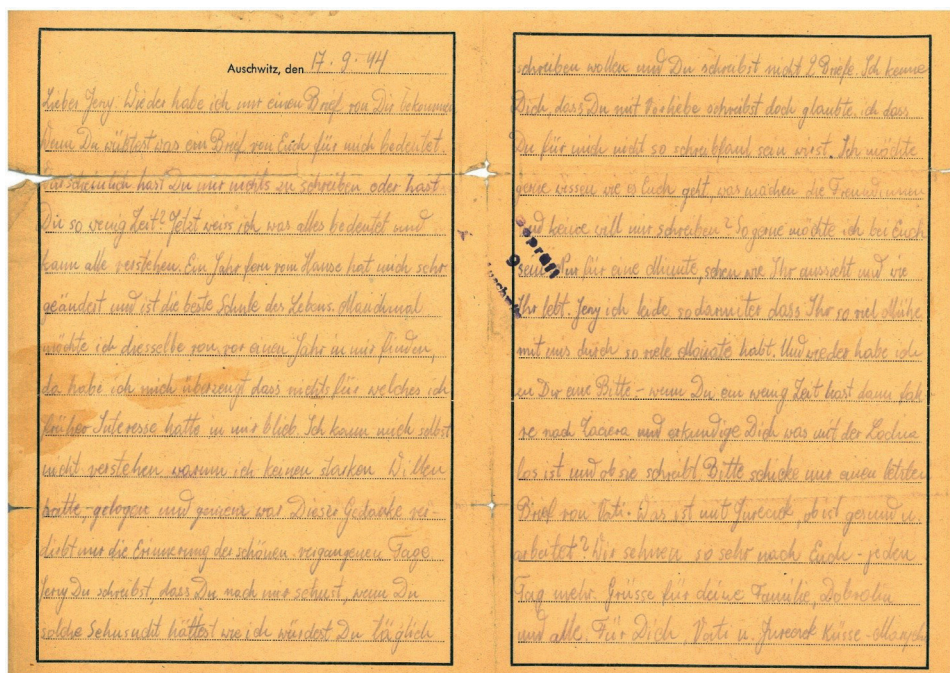 Auschwitz, den 17.9.44
Lieber Jerzy! Wieder habe ich nur einen Brief von Dir bekommen
Wenn Du wüßtest was ein Brief von Euch für mich bedeutet.
Warscheinlich hast Du mir nichts zu schreiben oder hast
Du so wenig Zeit? Jetzt weiss ich was alles bedeutet und
kann alle verstehen. Ein Jahr fern vom Hause hat mich sehr
geändert und ist die beste Schule des Lebens. Manchmal
möchte ich dieselbe von vor einen Jahr in mir finden,
da habe ich mich überzeugt dass nichts für welches ich
früher Interesse hatte in mir blieb. Ich kann mich selbst
nicht verstehen warum ich keinen starken Willen
hatte, gelogen und war. Dieser Gedanke ver-
dirbt mir die Erinnerung der schönen, vergangenen Tage
Jerzy Du schreibst, dass Du nach mir sehnst, wenn Du
solche Sehnsucht hättest wie ich würdest Du täglich
schreiben wollen und Du schreibst nicht 2 Briefe. Ich kenne
Dich, dass Du mit Vorliebe schreibst doch glaubte, ich dass
Du für mich nicht so schreibfaul sein wirst. Ich möchte
gerne wissen wie es Euch geht, was machen die Freundinnen
und keine will mir schreiben? So gerne möchte ich bei Euch
sein. Nur für eine Minute, sehen wie Ihr aussieht und wie
Ihr lebt. Jerzy ich leide so darunter dass Ihr so viel Mühe
mit uns durch so viele Monate habt. Und wieder habe ich
an Dir eine Bitte - wenn Du ein wenig Zeit hast dann fah-
re nach und erkundige Dich was mit der
los ist und ob sie schreibt. Bitte schicke mir einen letzten
Brief von Vati. Was ist mit Jureczek, ob ist gesund u.
arbeitet? Wir sehnen so sehr nach Euch - jeden
Tag mehr. Grüsse für deine Familie,
und alle. Für Dich, Vati u. Jureczek Küsse -
Geprüft
9